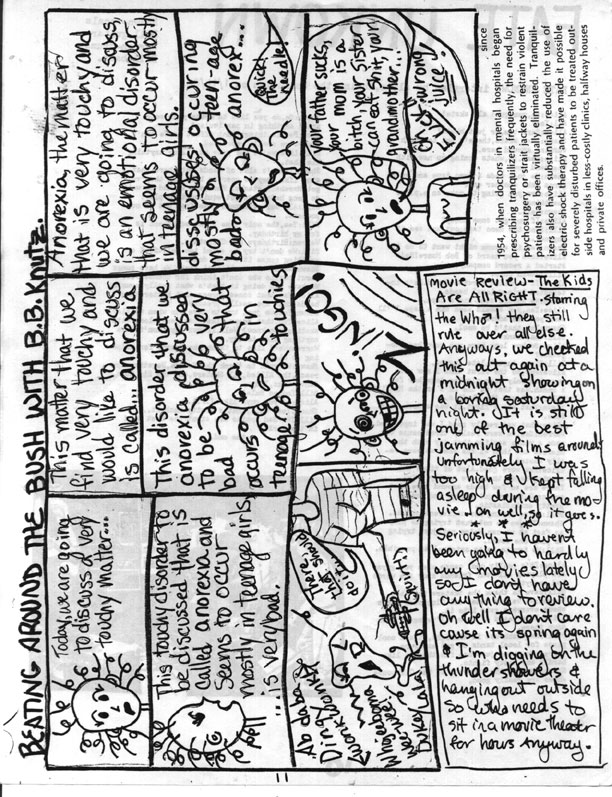 BEATING AROUND THE BUSH WITH B.B. Knutz.
Today, we are going
to discuss a very
touchy matter...
This matter that we
find very touchy and
would like to discuss
is called... anorexia
Anorexia, the matter
that is very touchy and
we are going to
is an emotional disorder
that seems to occur mostly
in teenage girls.
This touchy disorder to
be discussed that is
called anorexia and
seems to occur
mostly in teenage girls,
...is very bad.
This disorder that we
anorexia discussed
to be very
bad that
occurs in
teenage touchies
occuring
mostly teen-age
bad anorex....
Quick,
the
needle!
Ab da ba
Ding
wonk wonk!
wee wee
Dukey Lala!
There
that should
do it
Squirt
your father sucks,
your mom is a
bitch, your sister
can eat shit, your
grandmother...
Oh
Fuck, wrong
juice.
since
1954, when doctors in mental hospitals began
prescribing tranquilizers frequently, the need for
psychosurgery or strait jackets to restrain violent
patients has been virtually eliminated. Tranquil-
izers also have substantially reduced the use of
electric shock therapy and have made it possible
for severely disturbed patients to be treated out-
side hospitals in less-costly clinics, halfway houses
and private offices.
Movie Review - The Kids
Are All RigHT. starring
the Who! they still
rule over all else.
Anyways, we checked
this out again at a
midnight showing on
a boring saturday
night. It is still
one of the best
jamming films around
unfortunately I was
too high & kept falling
asleep during the mo-
vie. oh well, so it goes.
* * *
Seriously, I haven't
been going to hardly
any movies lately
so I don't have
anything to review.
oh well I don't care
cause its spring again
& I'm digging on the
thunder showers &
hanging out outside
so who needs to
sit in a movie theater
for hours Anyway.
11